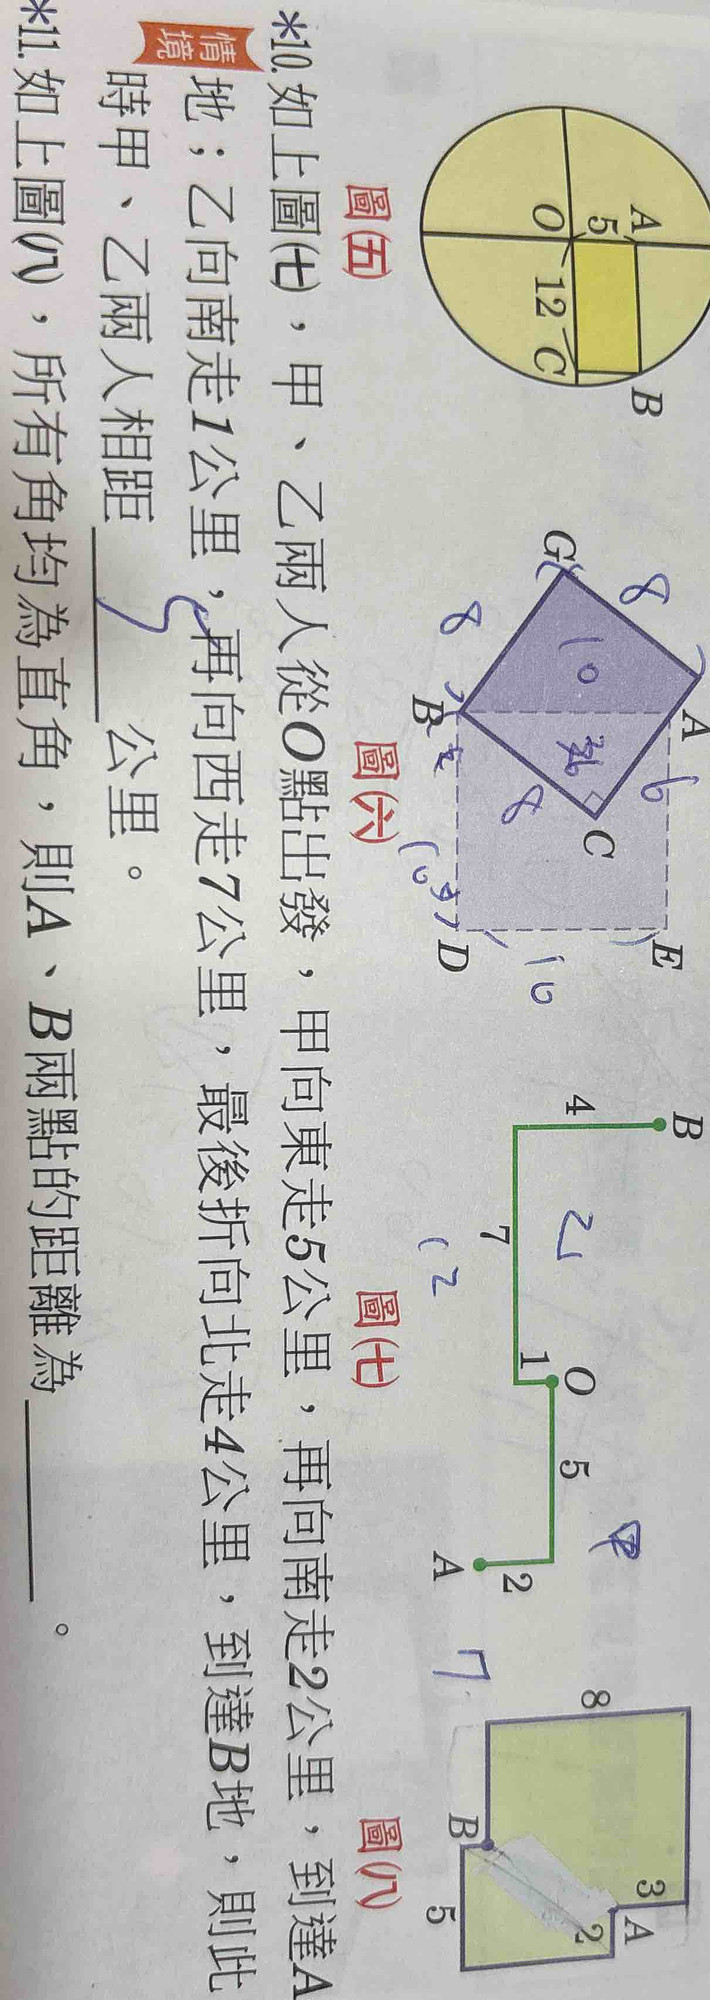 A
5
O
12
C
B
圖(五)
G
8
8
10
A
6
36
8
C
B
10
E
10
D
圖(六)
B
4
乙
7
12
1
O
5
甲
2
A
7
圖(七)
8
3
A
2
B
5
圖(八)
*10. 如上圖(七)，甲、乙兩人從O點出發，甲向東走5公里，再向南走2公里，到達A
情境
地；乙向南走1公里，再向西走7公里，最後折向北走4公里，到達B地，則此
時甲、乙兩人相距______公里。
*11. 如上圖(八)，所有角均為直角，則A、B兩點的距離為______。